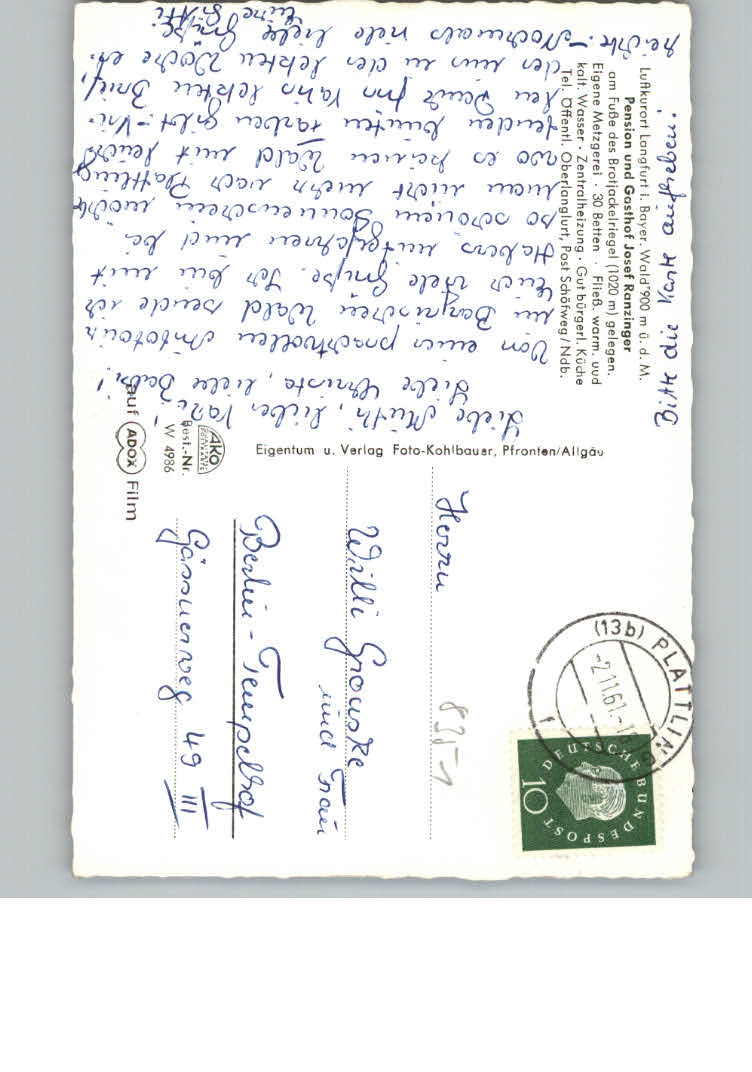 Luftkurort Langfurt i. Bayer. Wald 900 m ü. d. M.
Pension und Gasthof Josef Ranzinger
am Fuße des Brotjackelriegel (1020 m) gelegen.
Eigene Metzgerei · 30 Betten · Fließ. warm. uud
kalt. Wasser · Zentralheizung · Gut bürgerl. Küche
Tel. Öffentl. Oberlangfurt, Post Schöfweg/Ndb.
Bitte die Karte aufheben!
Liebe Mutti, lieber Vati,
Liebe Christa, liebe Babsi!
Von einer prachtvollen Autotour
im Bayrischen Wald sende ich
Euch viele Grüße. Ich bin mit
Habers mitgefahren und bei
so schönem Sonnenschein möchte
man nicht mehr nach Plattling
wo es keinen Wald mit leuch-
tenden bunten Farben gibt. Vie-
len Dank für Vatis letzten Brief,
der uns in der letzten Woche er-
reichte. - Nochmals viele liebe Grüße
Eure Gitti
Eigentum u. Verlag Foto-Kohlbauer, Pfronten/Allgäu
AKO
Best.-Nr.
W 4986
auf ADOX Film
(13b) PLATTLING
-2.11.61.-
f
DEUTSCHE BUNDESPOST
10
Herrn
Willi Gronske
und Frau
Berlin-Tempelhof
Gässnerweg 49 III